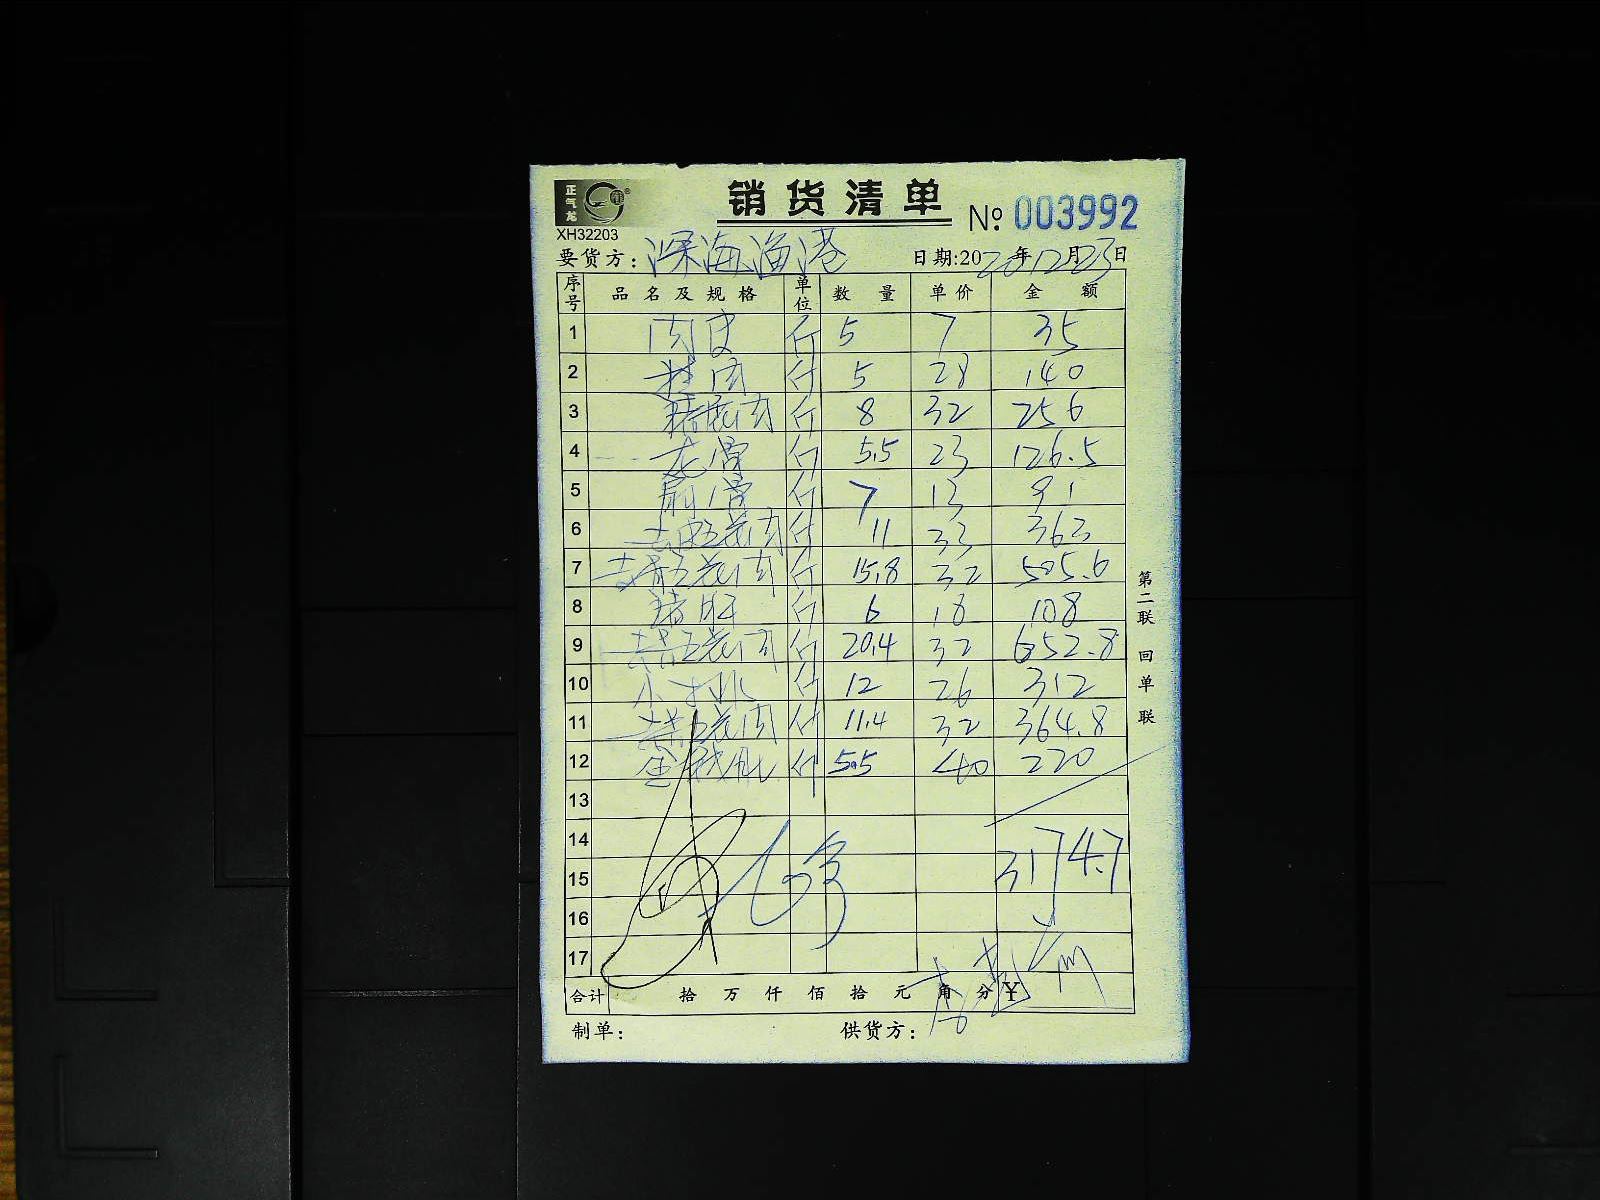 正气龙
XH32203
销货清单
№ 003992
要货方: 深海渔港 日期:2020年12月23日
序号 品名及规格 单位 数量 单价 金额
1 肉皮 斤 5 7 35
2 肉 斤 5 28 140
3 精瘦肉 斤 8 32 256
4 龙骨 斤 5.5 23 126.5
5 扇骨 斤 7 13 91
6 去皮五花肉 斤 11 33 363
7 去骨五花肉 斤 15.8 32 505.6
8 猪肝 斤 6 18 108
9 五花肉 斤 20.4 32 652.8
10 小排 斤 12 26 312
11 五花肉 斤 11.4 32 364.8
12 金钱腱 斤 5.5 40 220
13
14
15 3174.7
16
17
合计 拾 万 仟 佰 拾 元 角 分 ¥
制单: 供货方:
第二联 回单联